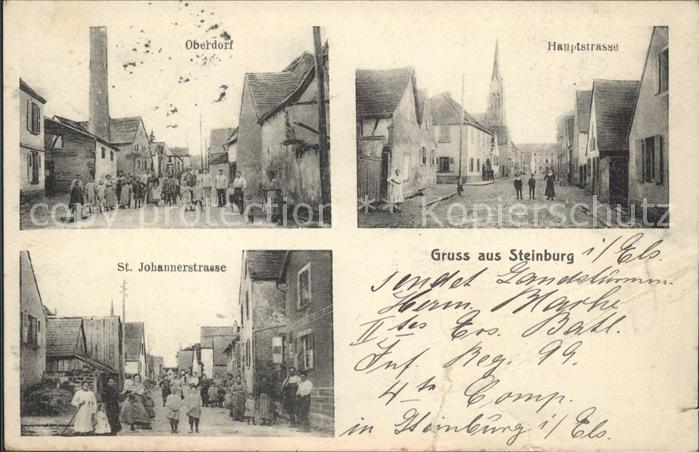 Oberdorf
Hauptstrasse
copy protection * Kopierschutz
St. Johannerstrasse
Gruss aus Steinburg i/Els.
sendet Landsturmm.
Herm.
IItes Ers. Batl.
Inf. Reg. 99.
4te Comp.
in Steinburg i/Els.